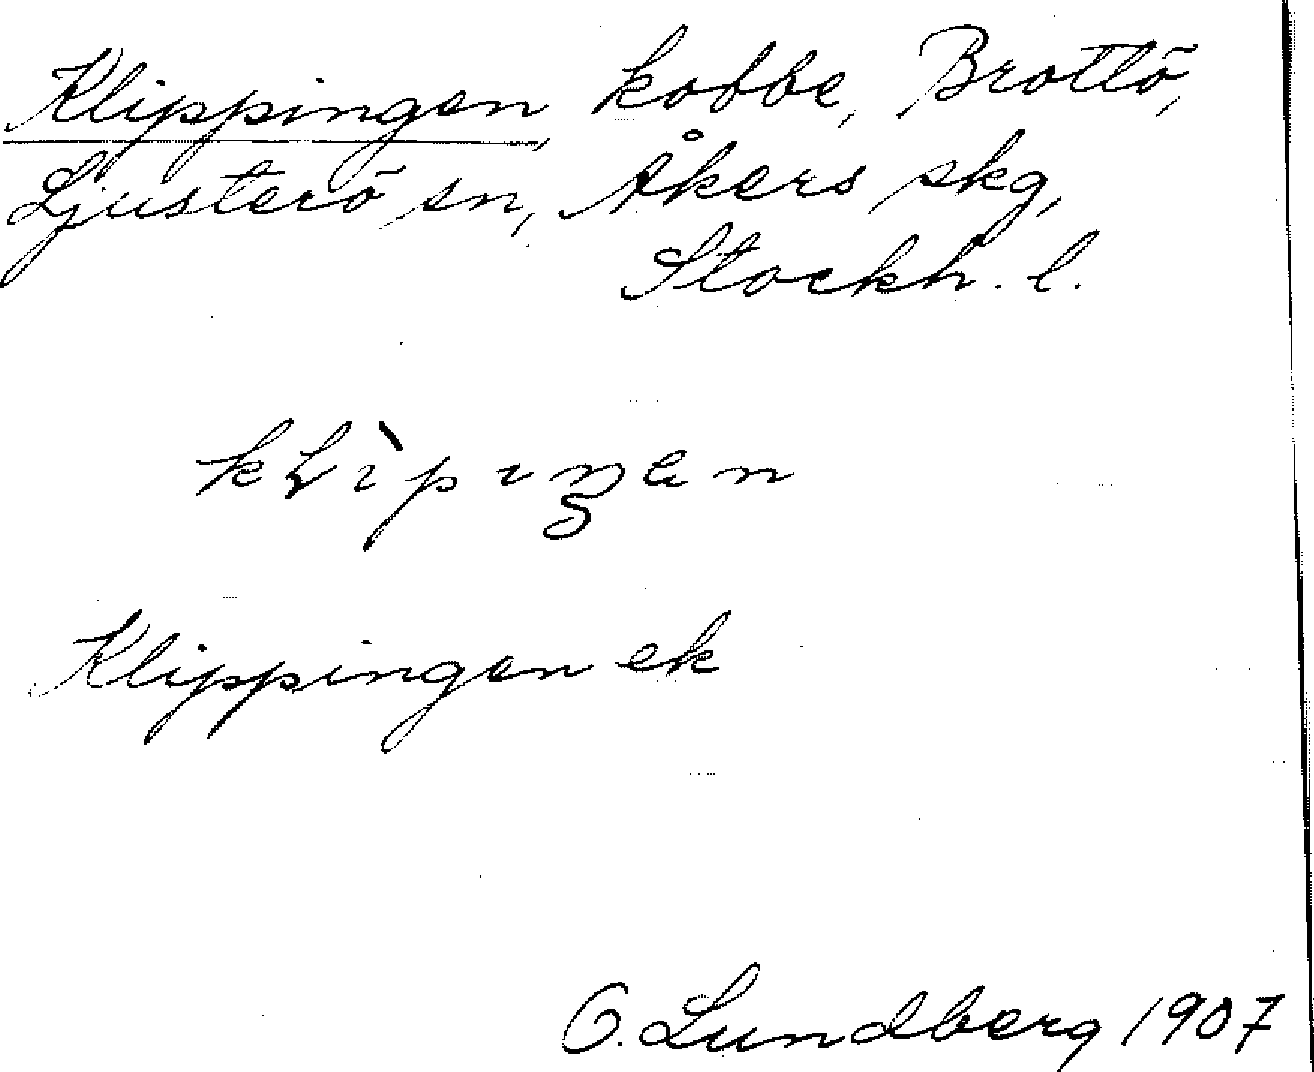 Klippingen, kobbe, Brottö,
Ljusterö sn, Åkers skg,
Stockh. l.
Klippingen ek
O. Lundberg 1907